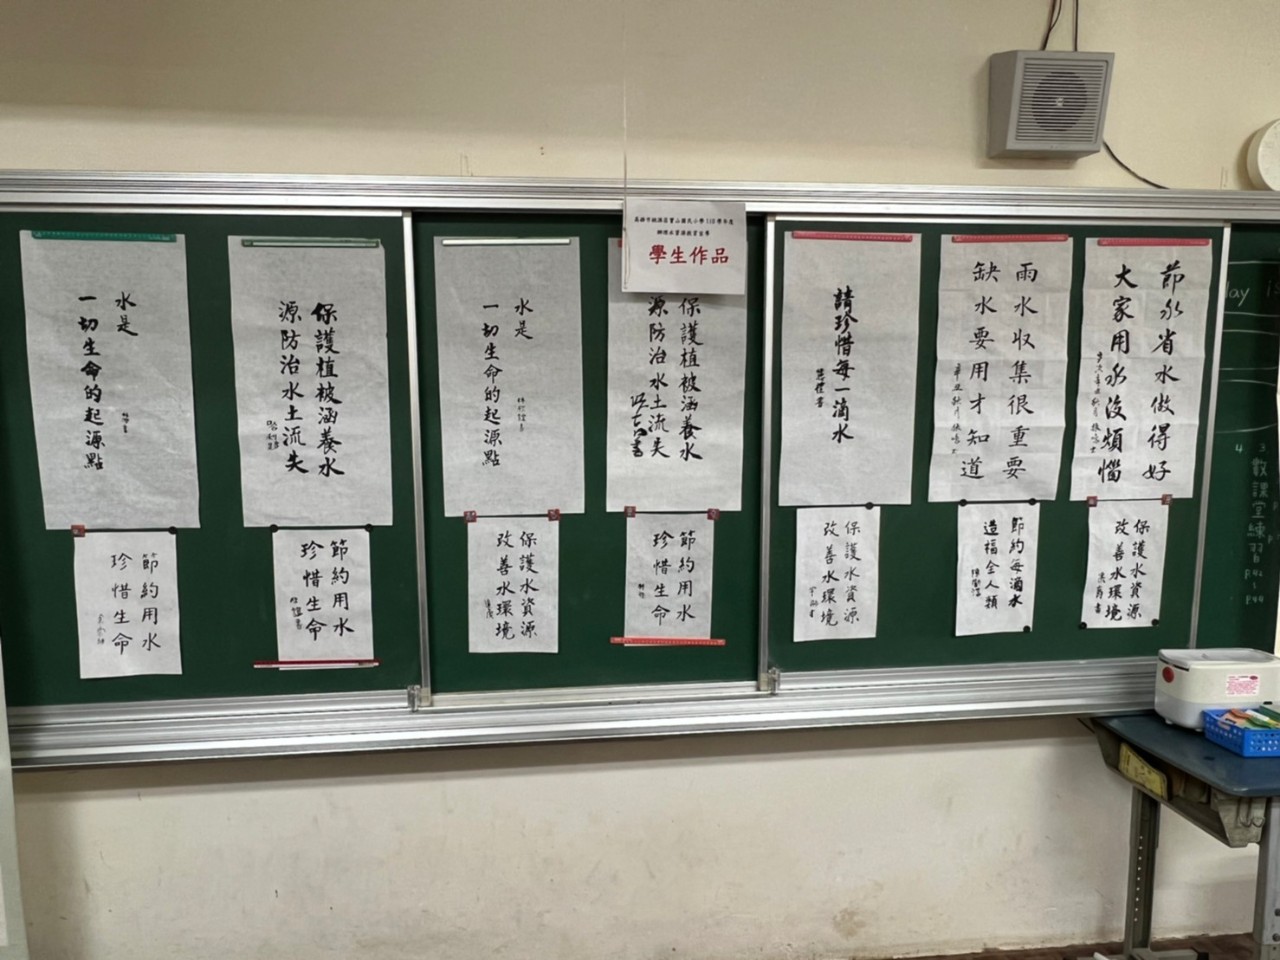 高雄市桃源區寶山國民小學110學年度
辦理水資源教育宣導
學生作品
節水省水做得好
大家用水沒煩惱
雨水收集很重要
缺水要用才知道
請珍惜每一滴水
保護植被涵養水
源防治水土流失
水是
一切生命的起源點
保護植被涵養水
源防治水土流失
水是
一切生命的起源點
保護水資源
改善水環境
節約每滴水
造福全人類
保護水資源
改善水環境
節約用水
珍惜生命
保護水資源
改善水環境
節約用水
珍惜生命
節約用水
珍惜生命
數課堂練習